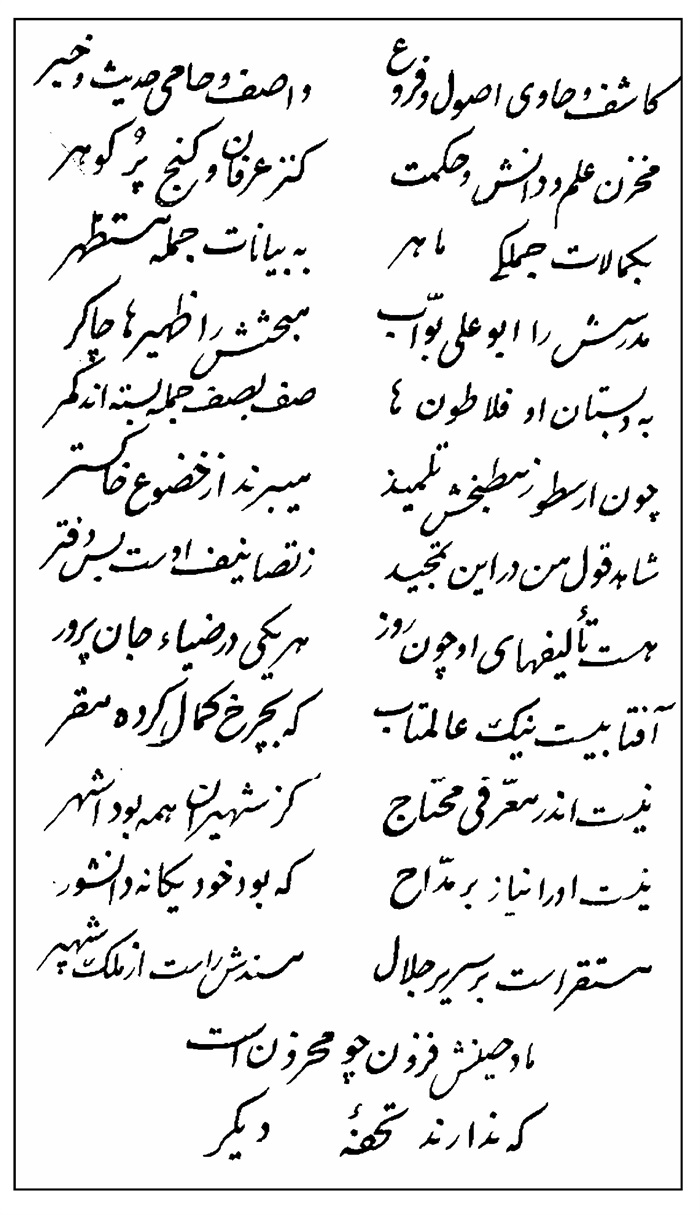 کاشف و حاوی اصول و فروع واصف و حامی حدیث و خبر
مخزن علم و دانش و حکمت کنز عرفان و گنج پُر گوهر
بکمالات جملگی ماهر به بیانات جمله مستظهر
مدرسش را ابوعلی بوّاب مبحثش را ظهیرها چاکر
به دبستان او فلاطون ها صف بصف جمله بسته اند کمر
چون ارسطو ز مطبخش تلمیذ میبرند از خضوع خاکستر
شاهد قول من در این تمجید ز تصانیف اوست بس دفتر
هست تألیفهای او چون روز هریکی در ضیاء جان پرور
آفتابیست نیک عالمتاب که بچرخ کمال کرده مقر
نیست اندر معرّفی محتاج کز شهیران همه بود اشهر
نیست او را نیاز بر مدّاح که بود خود یگانه دانشور
مستقر است بر سریر جلال مسندش راست از ملک شهپر
مادحینش فزون چو محزون است
که ندارند تحفهٔ دیگر